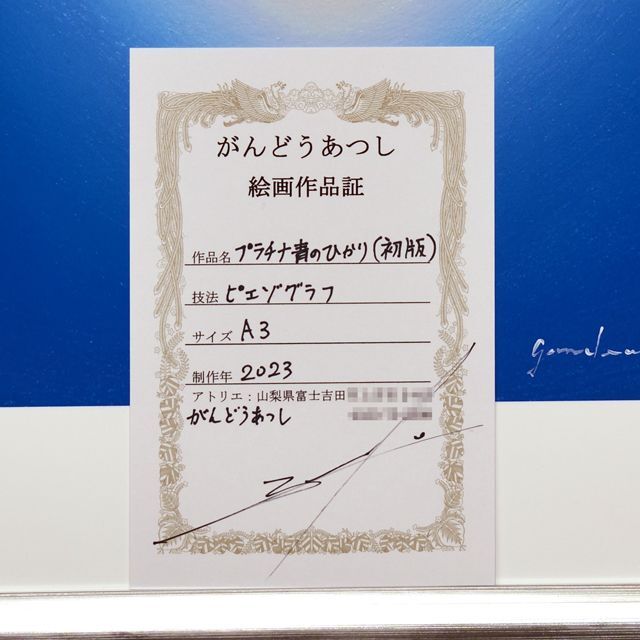 がんどうあつし
絵画作品証
作品名 プラチナ青のひかり(初版)
技法 ピエゾグラフ
サイズ A3
制作年 2023
アトリエ：山梨県富士吉田
がんどうあつし